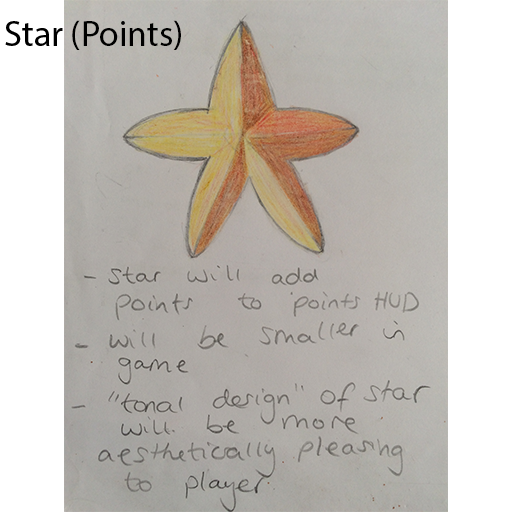 Star (Points)
- Star will add
points to points HUD
- will be smaller in
game
- "tonal design" of star
will be more
aesthetically pleasing
to player.